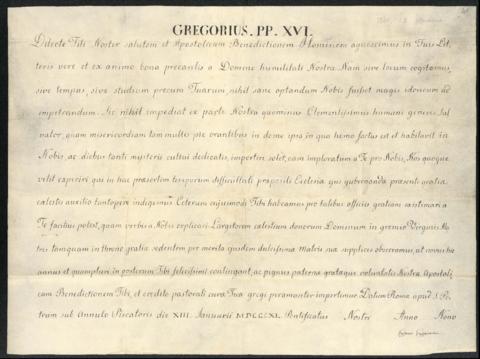 GREGORIUS. PP. XVI.
Dilecte Fili Noster salutem et Apostolicam Benedictionem. Hominem agnoscimus in Tuis Lit
teris vere et ex animo bona precantis a Domino humilitati Nostræ. Nam sive locum cogitamus,
sive tempus, sive studium precum Tuarum, nihil sane optandum Nobis fuisset magis idoneum ad
impetrandum. Ac nihil impediat ex parte Nostra quominus Clementissimus humani generis Sal
vator, quam misericordiam tam multis pie orantibus in domo ipsa in qua homo factus est et habitavit in
Nobis, ac diebus tanti mysterii cultui dedicatis, impertiri solet, eam imploratam a Te pro Nobis, Nos quoque
velit experiri qui in hac præsertim temporum difficultate præpositi Ecclesiæ ejus gubernandæ præsenti gratia
cælestis auxilio tantopere indigemus. Ceterum cujusmodi Tibi habeamus pro talibus officiis gratiam æstimari a
Te facilius potest, quam verbis a Nobis explicari. Largitorem cælestium donorum Dominum in gremio Virginis Ma
tris tamquam in throno gratiæ sedentem per merita ejusdem dulcissimæ Matris suæ supplices obsecramus, ut novus hic
annus et quamplures in posterum Tibi felicissimi contingant, ac pignus paternæ gratæque voluntatis Nostræ Apostoli
cam Benedictionem Tibi, et credito pastorali curæ Tuæ gregi peramanter impertimur. Datum Romæ apud S. Pe
trum sub Annulo Piscatoris die XIII. Januarii MDCCCXL. Pontificatus Nostri Anno Nono